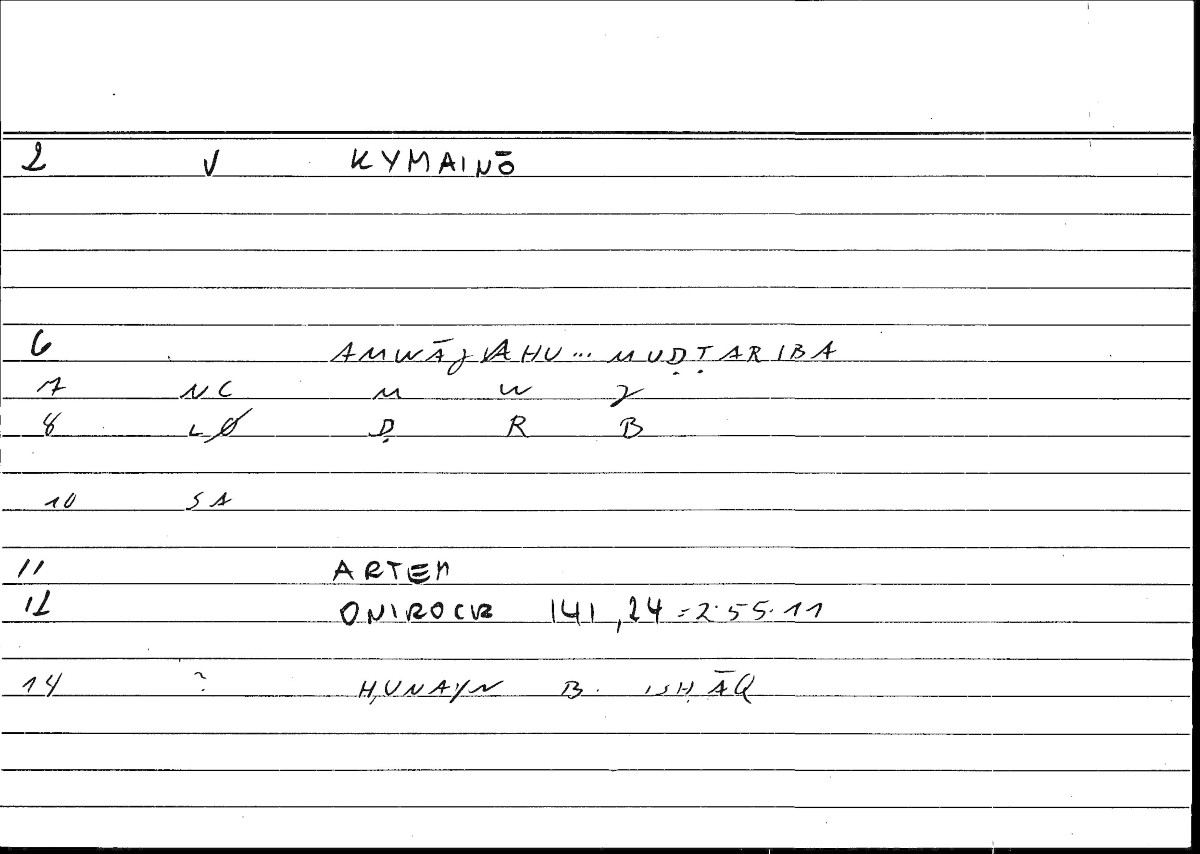 2 V KYMAINŌ
6 AMWĀJ AHU... MUḌṬARIBA
7 NC M W J
8 LØ Ḍ R B
10 SA
11 ARTEM
12 ONIROCR 141,24 = 2.55.11
14 ? ḤUNAYN B. ISḤĀQ